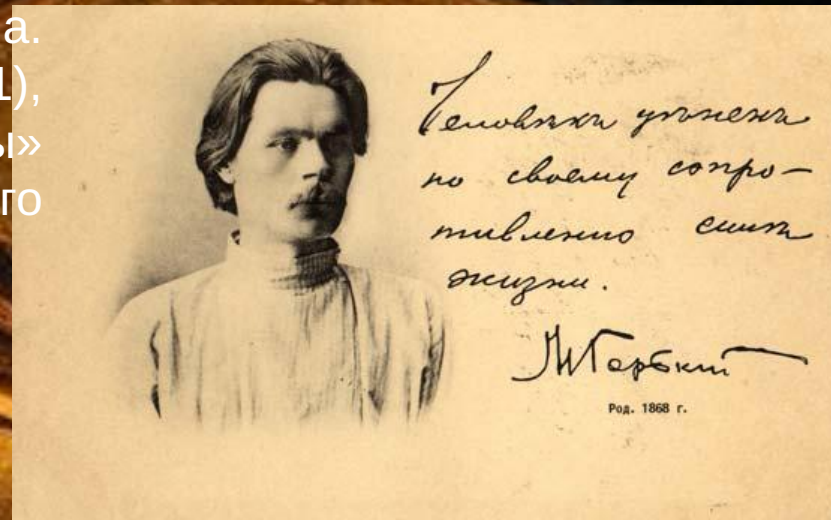 а.
1),
ы»
го
Человѣкъ цѣненъ
по своему сопро-
тивленію силѣ
жизни.
МГорькій
Род. 1868 г.